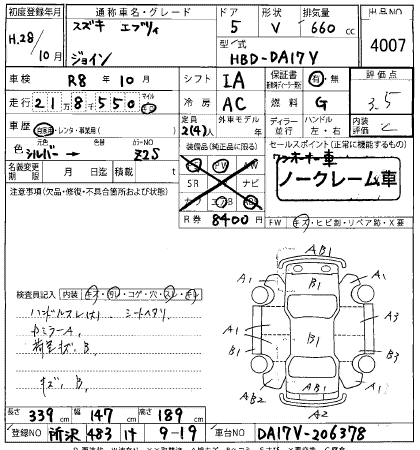 初度登録年月 通称車名・グレード ドア 形状 排気量 出品NO
スズキ エブリィ 5 V 660 cc
H.28/10月 ジョイン 型式 HBD-DA17V 4007
車検 R8年10月 シフト IA 保証書 有・無 評価点 3.5
走行 218550 マイル Km 冷房 AC 燃料 G 内装評価 C
車歴 自家用・レンタ・事業用( ) 定員 2(4)人 外車モデル 年 ディーラー・並行 ハンドル 左・右
色 元色 シルバー → 色替 カラーNO Z2S 装備品(純正品に限る) セールスポイント(正常に機能するもの)
名義変更期限 月 日迄 積載 t SR ナビ ワンオーナー車
ノークレーム車
注意事項(欠品・修復・不具合箇所および状態) R券 8400円 FW キズ・ヒビ割・リペア跡・X要
AB1
A1 A1
検査員記入 内装 キズ・汚レ・コゲ・穴・スレ・キレ
ハンドルスレ(大) シートヘタリ
カミラーA
荷室キズ、B
キズ、B
A1 B1 A3
B1 B1
AB2 A1
A2
長さ 339 cm 幅 147 cm 高さ 189 cm
登録NO 所沢 483 け 9-19 車台NO DA17V-206378